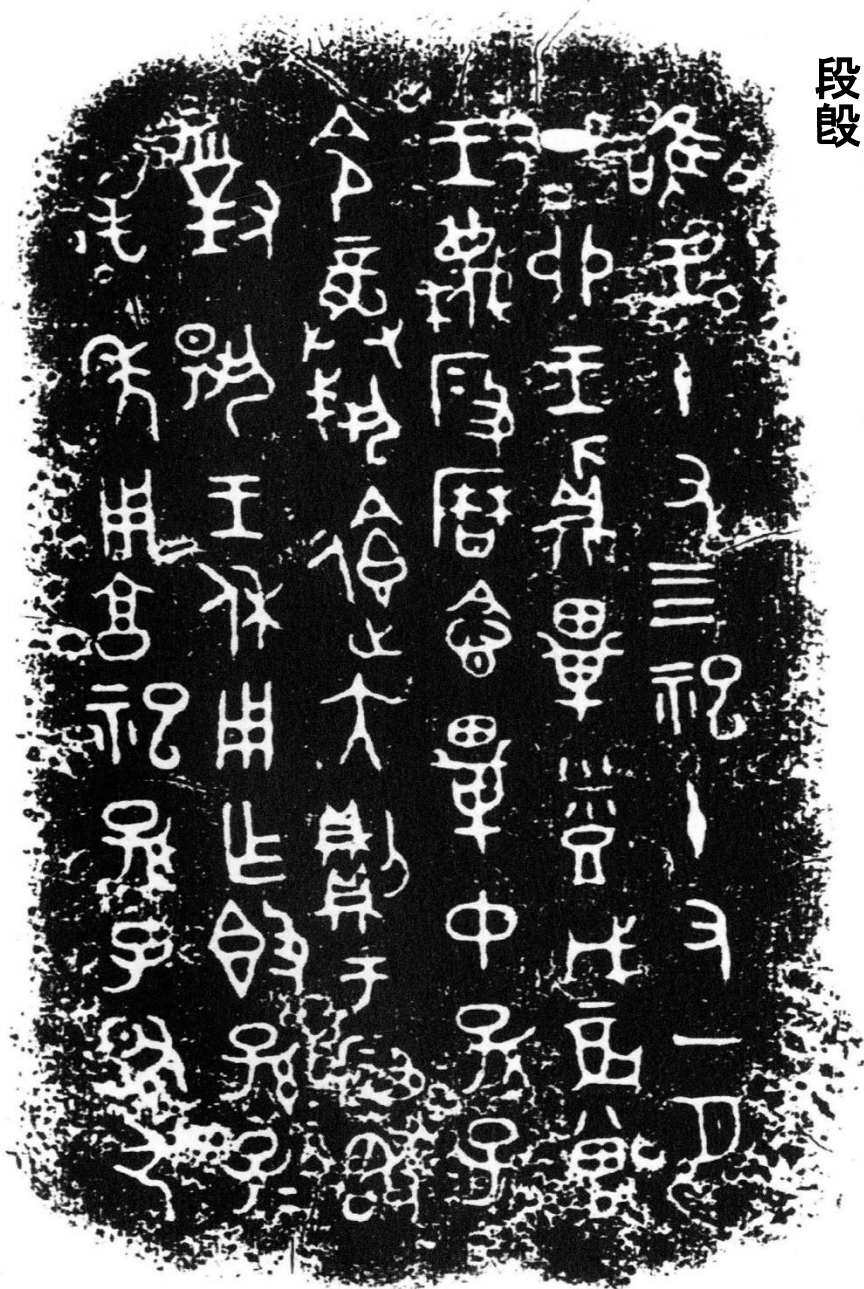 段𣪘
唯王十又四祀十又一月
丁卯王鼒畢登戊辰曾
王蔑段曆念畢中孫子
令龏𢦚饋大則于段敢
對揚王休用乍𣪘孫孫子子
萬年用亯祀孫子引